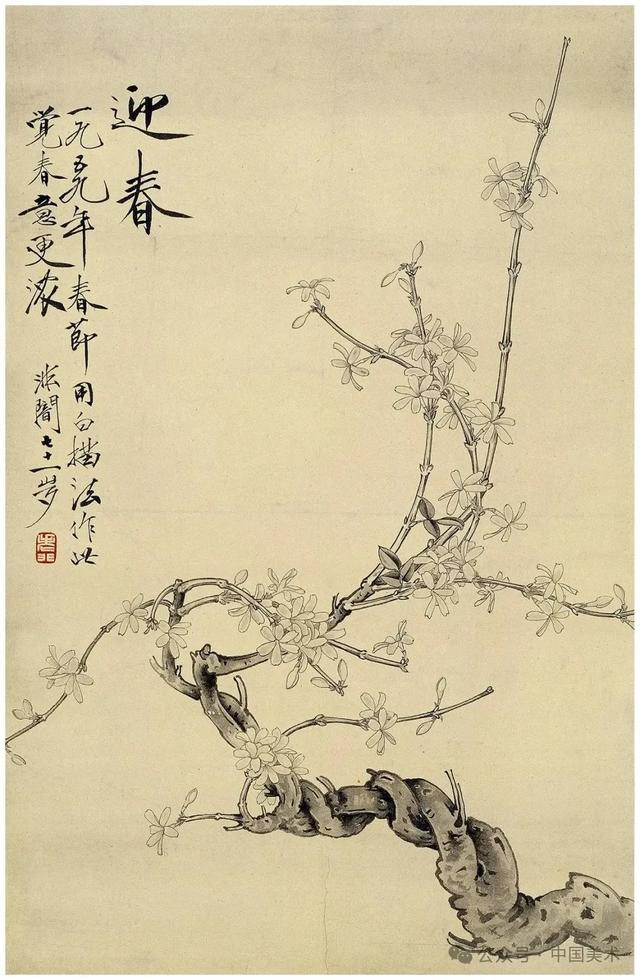 迎春
一九五九年春节用白描法作此
觉春意更浓
非闇七十一岁
公众号·中国美术